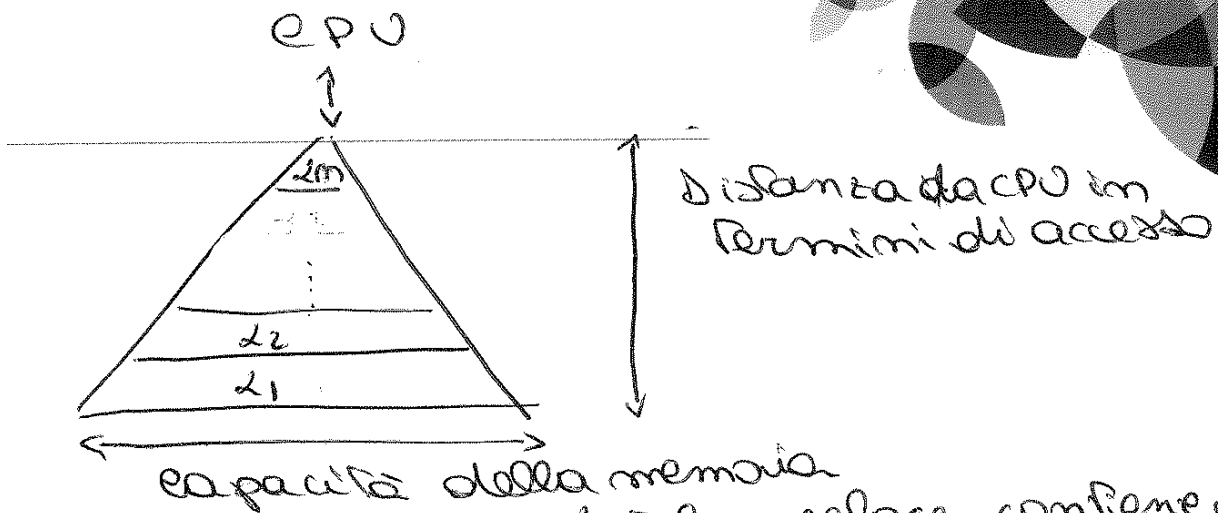 CPU
Lm
L2
L1
Distanza da CPU in
termini di accesso
capacità della memoria
veloce contiene